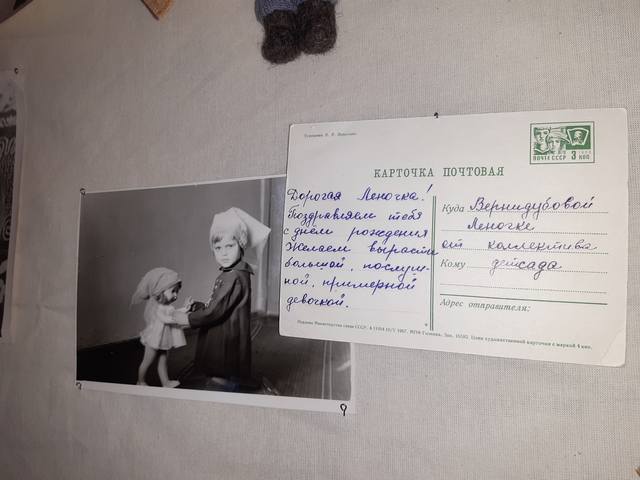 КАРТОЧКА ПОЧТОВАЯ
ПОЧТА СССР 3 КОП
Дорогая Леночка!
Поздравляем тебя
с днём рождения
Желаем вырасти
большой, послуш-
ной, примерной
девочкой.
Куда Вернидубовой
Леночке
от коллектива
Кому детсада
Адрес отправителя:
Издание Министерства связи СССР. 1967. МПФ Гознака. Зак. Цена художественной карточки с маркой 4 коп.